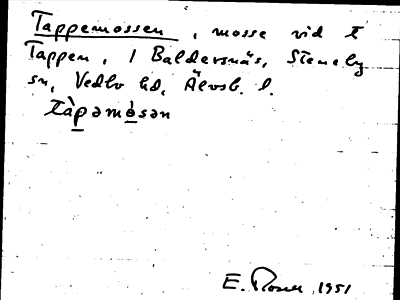 Tappemossen, mosse vid t
Tappen, 1 Baldersnäs, Steneby
sn, Vedbo hd, Älvsb. l.
tàpəmòsən
E. Rosell, 1951